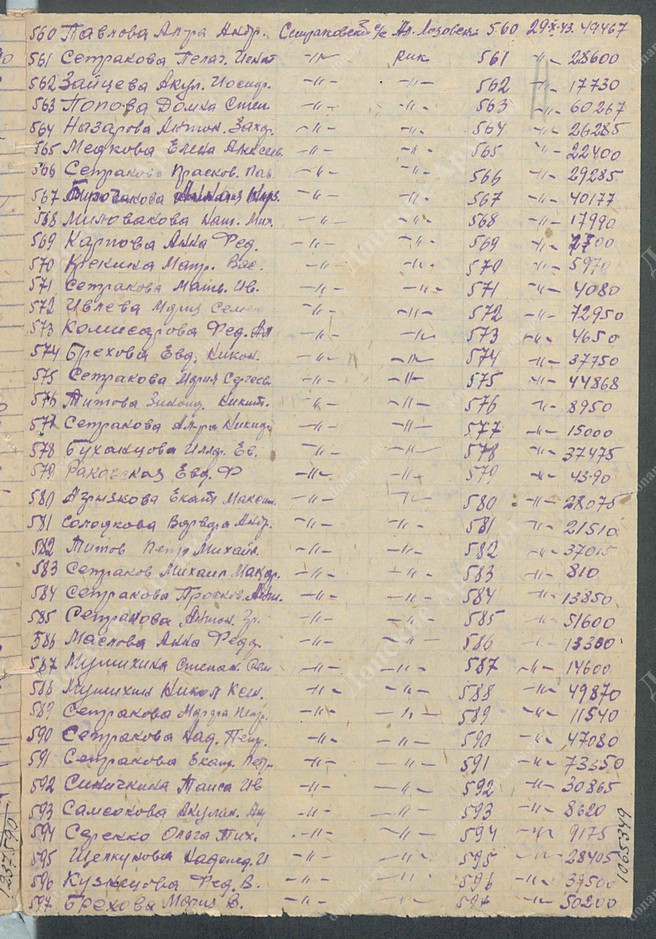 560 Павлова Ал-ра Андр. Сетраковский с/с Ал. Лозовск. 560 29-X-43. 49467
561 Сетракова Пелаг. Игнат -"- рик 561 -"- 28600
562 Зайцева Акул. Иосифр. -"- -"- 562 -"- 17730
563 Попова Домна Степ -"- -"- 563 -"- 60267
564 Назарова Антон. Захар. -"- -"- 564 -"- 26285
565 Медкова Елена Алексеев. -"- -"- 565 -"- 22400
566 Сетракова Прасков. Пав. -"- -"- 566 -"- 29285
567 -"- -"- 567 -"- 40177
568 Миловакова Нат. Мих. -"- -"- 568 -"- 17990
569 Карпова Анна Фед. -"- -"- 569 -"-
570 Кнекина Матр. Вас. -"- -"- 570 -"- 5970
571 Сетракова Матв. Ив. -"- -"- 571 -"- 4080
572 Ивлева Мария Семен -"- -"- 572 -"- 72950
573 Комисарова Фед. -"- -"- 573 -"- 4650
574 Брехова Евд. Никон. -"- -"- 574 -"- 37750
575 Сетракова Мария Сергеев. -"- -"- 575 -"- 44868
576 Титова Зинаид. Никит. -"- -"- 576 -"- 8950
577 Сетракова Ал-ра Никиф. -"- -"- 577 -"- 15000
578 Буханцова Ев. -"- -"- 578 -"- 37475
579 Раковская Евд. Ф -"- -"- 579 -"- 4390
580 Екат Максим. -"- -"- 580 -"- 28075
581 Солодкова Варвара Андр. -"- -"- 581 -"- 21510
582 Титов Петр Михайл. -"- -"- 582 -"-
583 Сетраков Михаил Макар. -"- -"- 583 -"- 810
584 Сетракова -"- -"- 584 -"- 13850
585 Сетракова Антон. Гр. -"- -"- 585 -"- 51600
586 Маслова Анна Федр. -"- -"- 586 -"- 13300
587 Мушихина Степан. -"- -"- 587 -"- 14600
588 Мушихин Никол Ксен. -"- -"- 588 -"- 49870
589 Сетракова Марфа Петр. -"- -"- 589 -"- 11540
590 Сетракова Над. Петр. -"- -"- 590 -"- 47080
591 Сетракова Екат. Петр. -"- -"- 591 -"- 73350
592 Синичкина Таиса Ив -"- -"- 592 -"- 30865
593 Самсонова Акулин. -"- -"- 593 -"- 8620
594 Сергенко Ольга Тих. -"- -"- 594 -"- 9175
595 Щелкунова Надежд. И -"- -"- 595 -"- 28405
596 Кузнецова Фед. В. -"- -"- 596 -"- 39500
597 Брехова Мария В. -"- -"- 597 -"- 50200
1237590
1065349